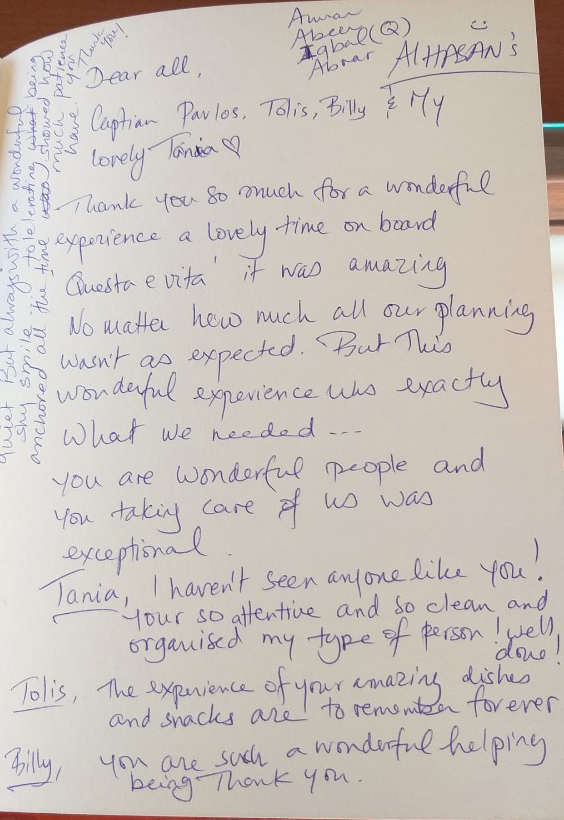 Amran
Abeer
Iqbal (Q)
Abrar
ALHASAN's
Dear all,
Captian Pavlos, Tolis, Billy & My
lovely Tania ♡
Thank you so much for a wonderful
experience a lovely time on board
Questa e vita' it was amazing
No matter how much all our planning
wasn't as expected. But This
wonderful experience was exactly
what we needed ---
you are wonderful people and
you taking care of us was
exceptional.
Tania, I haven't seen anyone like you!
Your so attentive and so clean and
organised my type of person! well
done!
Tolis, The experience of your amazing dishes
and snacks are to remember forever
Billy, you are such a wonderful helping
being Thank you.
quiet But always with a wonderful
shy smile, tolelerating what being
anchored all the time showed how
much patience
you have.
Thank
You!